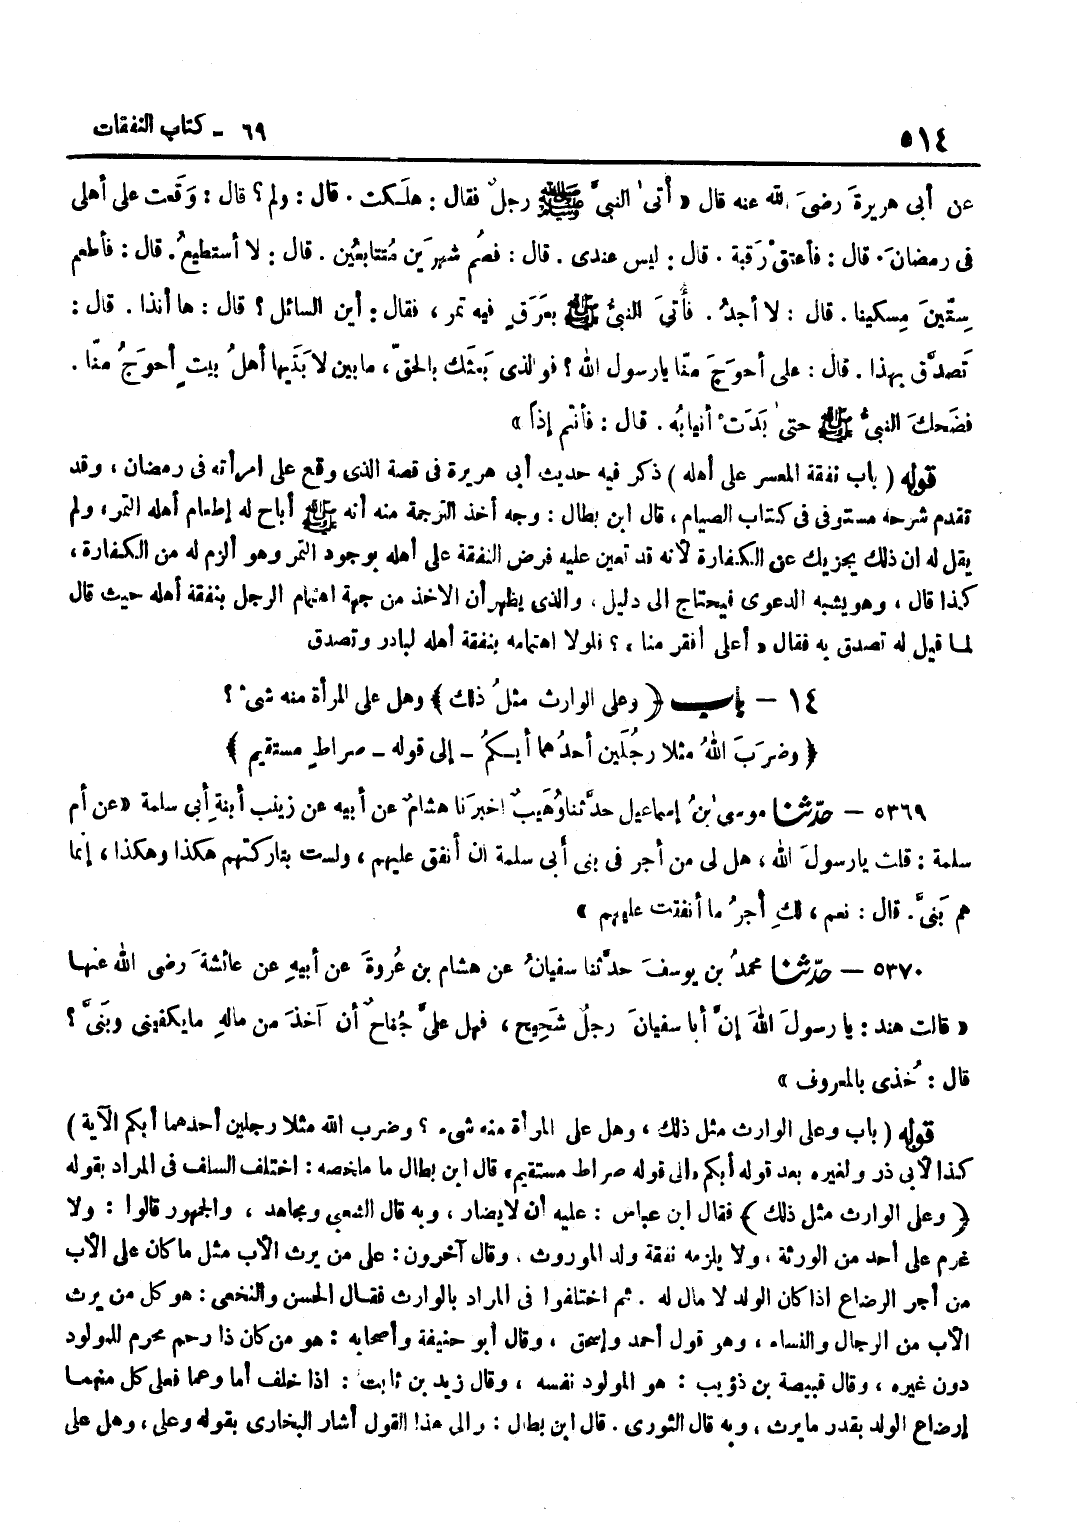 ٥١٤
٦٩ - كتاب النفقات
عن أبى هريرةَ رضىَ الله عنه قال « أُتىٰ النبىَّ ﷺ رجلٌ فقال : هلَكت . قال : ولم؟ قال : وَقَعت على أهلى
فى رمضانَ . قال : فأعتقْ رَقبة . قال : ليس عندى . قال : فصُم شهرَين مُتتابعَين . قال : لا أستطيعُ . قال : فأطعم
سِتّينَ مِسكينا . قال : لا أجدُ . فأُتىَ النبىُّ ﷺ بعَرَقٍ فيه تمر ، فقال : أين السائل ؟ قال : ها أنذا . قال :
تَصدَّق بهذا . قال : على أحوَجَ منّا يا رسول الله ؟ فوالذى بَعثَك بالحقّ ، ما بين لابَتَيها أهلُ بيتٍ أحوَجُ منّا .
فضَحكَ النبىُّ ﷺ حتىٰ بَدَتْ أنيابُه . قال : فأنتم إذاً »
قوله ( باب نفقة المعسر على أهله ) ذكر فيه حديث أبى هريرة فى قصة الذى وقع على امرأته فى رمضان ، وقد
تقدم شرحه مستوفى فى كتاب الصيام ، قال ابن بطال : وجه أخذ الترجمة منه أنه ﷺ أباح له إطعام أهله التمر ، ولم
يقل له ان ذلك يجزيك عن الكفارة لأنه قد تعين عليه فرض النفقة على أهله بوجود التمر وهو ألزم له من الكفارة ،
كذا قال ، وهو يشبه الدعوى فيحتاج الى دليل ، والذى يظهر أن الاخذ من جهة اهتمام الرجل بنفقة أهله حيث قال
لما قيل له تصدق به فقال « أعلى أفقر منا » ؟ فلولا اهتمامه بنفقة أهله لبادر وتصدق
١٤ - باب ﴿ وعلى الوارث مثلُ ذلك ﴾ وهل على المرأة منه شىْء ؟
﴿ وضرَبَ اللهُ مثلا رجُلَين أحدُهما أبكمُ - إلى قوله - صراطٍ مستقيم ﴾
٥٣٦٩ - حدّثنا موسى بنُ إسماعيل حدَّثنا وُهَيبٌ اخبرَنا هشامٌ عن أبيه عن زينب أبنةِ أبى سلمة « عن أم
سلمة : قلت يا رسولَ الله ، هل لى من أجر فى بنى أبى سلمة ان أُنفق عليهم ، ولست بتاركتهم هكذا وهكذا ، إنما
هم بَنىَّ . قال : نعم ، لكِ أجرُ ما أنفقت عليهم »
٥٣٧٠ - حدّثنا محمدُ بن يوسفَ حدَّثنا سفيانُ عن هشام بن عُروةَ عن أبيهِ عن عائشةَ رضى الله عنها
« قالت هند : يا رسولَ الله إنَّ أبا سفيانَ رجلٌ شَحِيح ، فهل علىَّ جُناحٌ أن آخذَ من مالهِ ما يكفينى وبَنىَّ ؟
قال : خُذى بالمعروف »
قوله ( باب وعلى الوارث مثل ذلك ، وهل على المرأة منه شىء ؟ وضرب الله مثلا رجلين أحدهما أبكم الآية )
كذا لأبى ذر ولغيره بعد قوله أبكم « الى قوله صراط مستقيم » قال ابن بطال ما ملخصه : اختلف السلف فى المراد بقوله
﴿ وعلى الوارث مثل ذلك ﴾ فقال ابن عباس : عليه أن لا يضار ، وبه قال الشعبى ومجاهد ، والجمهور قالوا : ولا
غرم على أحد من الورثة ، ولا يلزمه نفقة ولد الموروث . وقال آخرون : على من يرث الأب مثل ما كان على الأب
من أجر الرضاع اذا كان الولد لا مال له . ثم اختلفوا فى المراد بالوارث فقال الحسن والنخعى : هو كل من يرث
الأب من الرجال والنساء ، وهو قول أحمد وإسحق ، وقال أبو حنيفة وأصحابه : هو من كان ذا رحم محرم للمولود
دون غيره ، وقال قبيصة بن ذؤيب : هو المولود نفسه ، وقال زيد بن ثابت : اذا خلف أما وعما فعلى كل منهما
إرضاع الولد بقدر ما يرث ، وبه قال الثورى . قال ابن بطال : والى هذا القول أشار البخارى بقوله وعلى ، وهل على